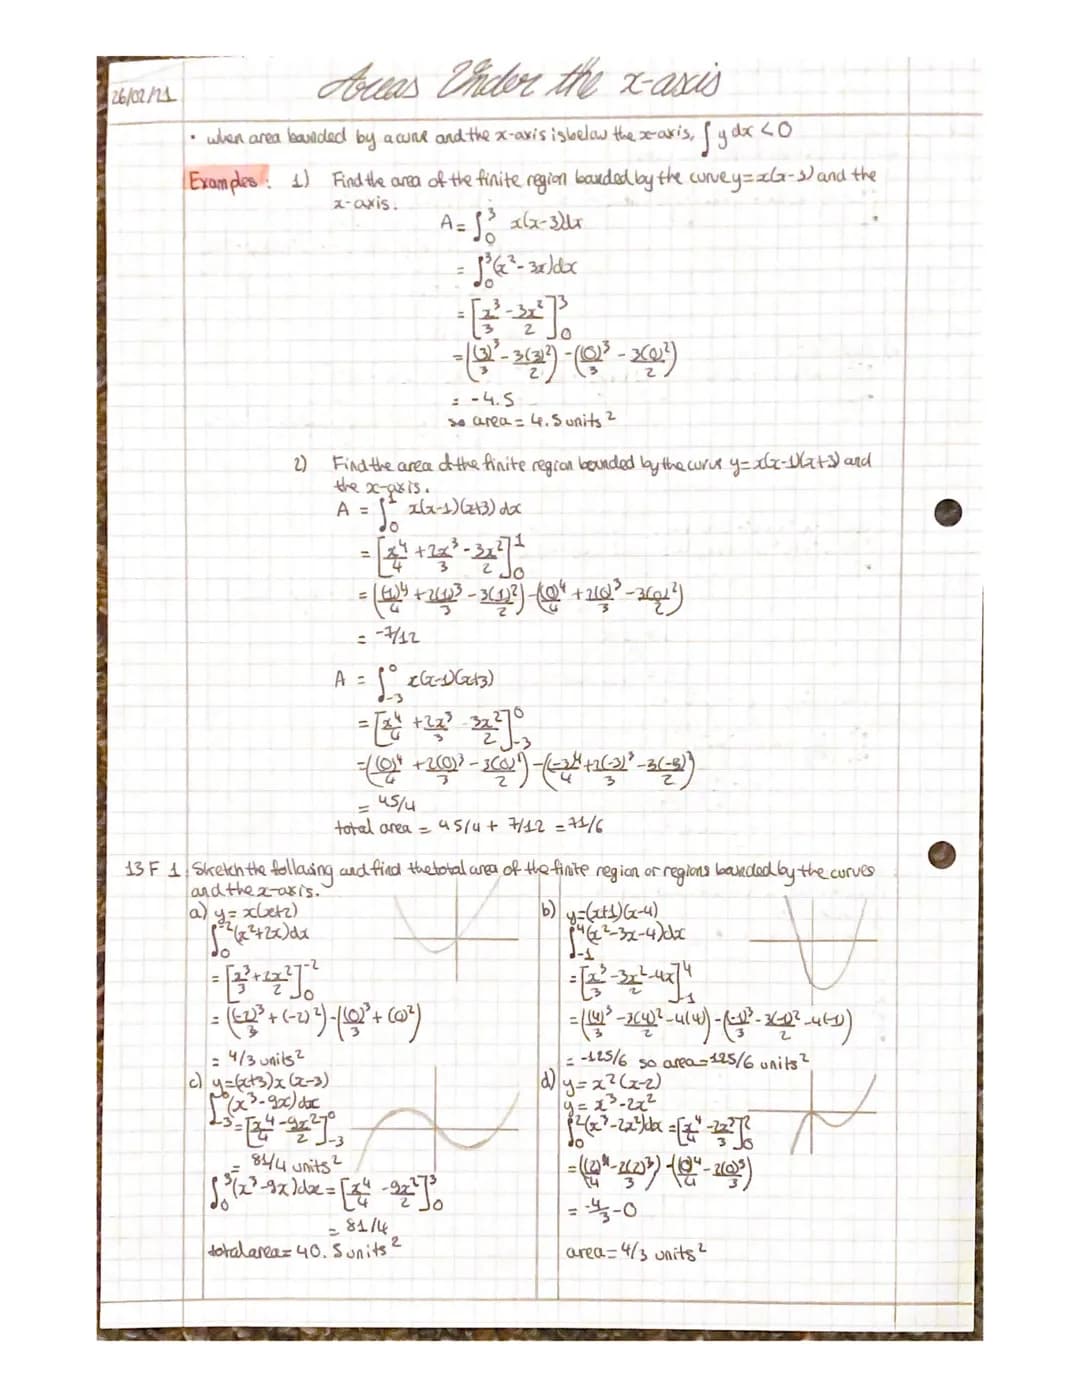 Areas Under the x-axis
26/02/21
• when area bounded by a curve and the x-axis is below the x-axis, ∫ y dx < 0
Examples: 1) Find the area of the finite region bounded by the curve y=x(x-3) and the
x-axis.
A = ∫₀³ x(x-3)dx
= ∫₀³(x²-3x)dx
= [x³/3 - 3x²/2]₀³
= ((3)³/3 - 3(3)²/2) - ((0)³/3 - 3(0)²/2)
= -4.5
so area = 4.5 units²
2) Find the area of the finite region bounded by the curve y=x(x-1)(x+3) and
the x-axis.
A = ∫₀¹ x(x-1)(x+3) dx
= [x⁴/4 + 2x³/3 - 3x²/2]₀¹
= ((1)⁴/4 + 2(1)³/3 - 3(1)²/2) - ((0)⁴/4 + 2(0)³/3 - 3(0)²/2)
= -7/12
A = ∫₋₃⁰ x(x-1)(x+3)
= [x⁴/4 + 2x³/3 - 3x²/2]₋₃⁰
= ((0)⁴/4 + 2(0)³/3 - 3(0)²/2) - ((-3)⁴/4 + 2(-3)³/3 - 3(-3)²/2)
= 45/4
total area = 45/4 + 7/12 = 71/6
13F 1 Sketch the following and find the total area of the finite region or regions bounded by the curves
and the x-axis.
a) y= x(x+2)
∫₀⁻²(x²+2x)dx
= [x³/3 + 2x²/2]₀⁻²
= ((-2)³/3 + (-2)²) - ((0)³/3 + (0)²)
= 4/3 units²
b) y=(x+1)(x-4)
∫₋₁⁴(x²-3x-4)dx
= [x³/3 - 3x²/2 - 4x]₋₁⁴
= ((4)³/3 - 3(4)²/2 - 4(4)) - ((-1)³/3 - 3(-1)²/2 - 4(-1))
= -125/6 so area=125/6 units²
c) y=(x+3)x(x-3)
∫₋₃⁰(x³-9x)dx
= [x⁴/4 - 9x²/2]₋₃⁰
= 81/4 units²
∫₀³(x³-9x)dx = [x⁴/4 - 9x²/2]₀³
= 81/4
total area = 40.5 units²
d) y= x²(x-2)
y= x³-2x²
∫₀²(x³-2x²)dx = [x⁴/4 - 2x³/3]₀²
= ((2)⁴/4 - 2(2)³/3) - ((0)⁴/4 - 2(0)³/3)
= -4/3 - 0
area = 4/3 units²